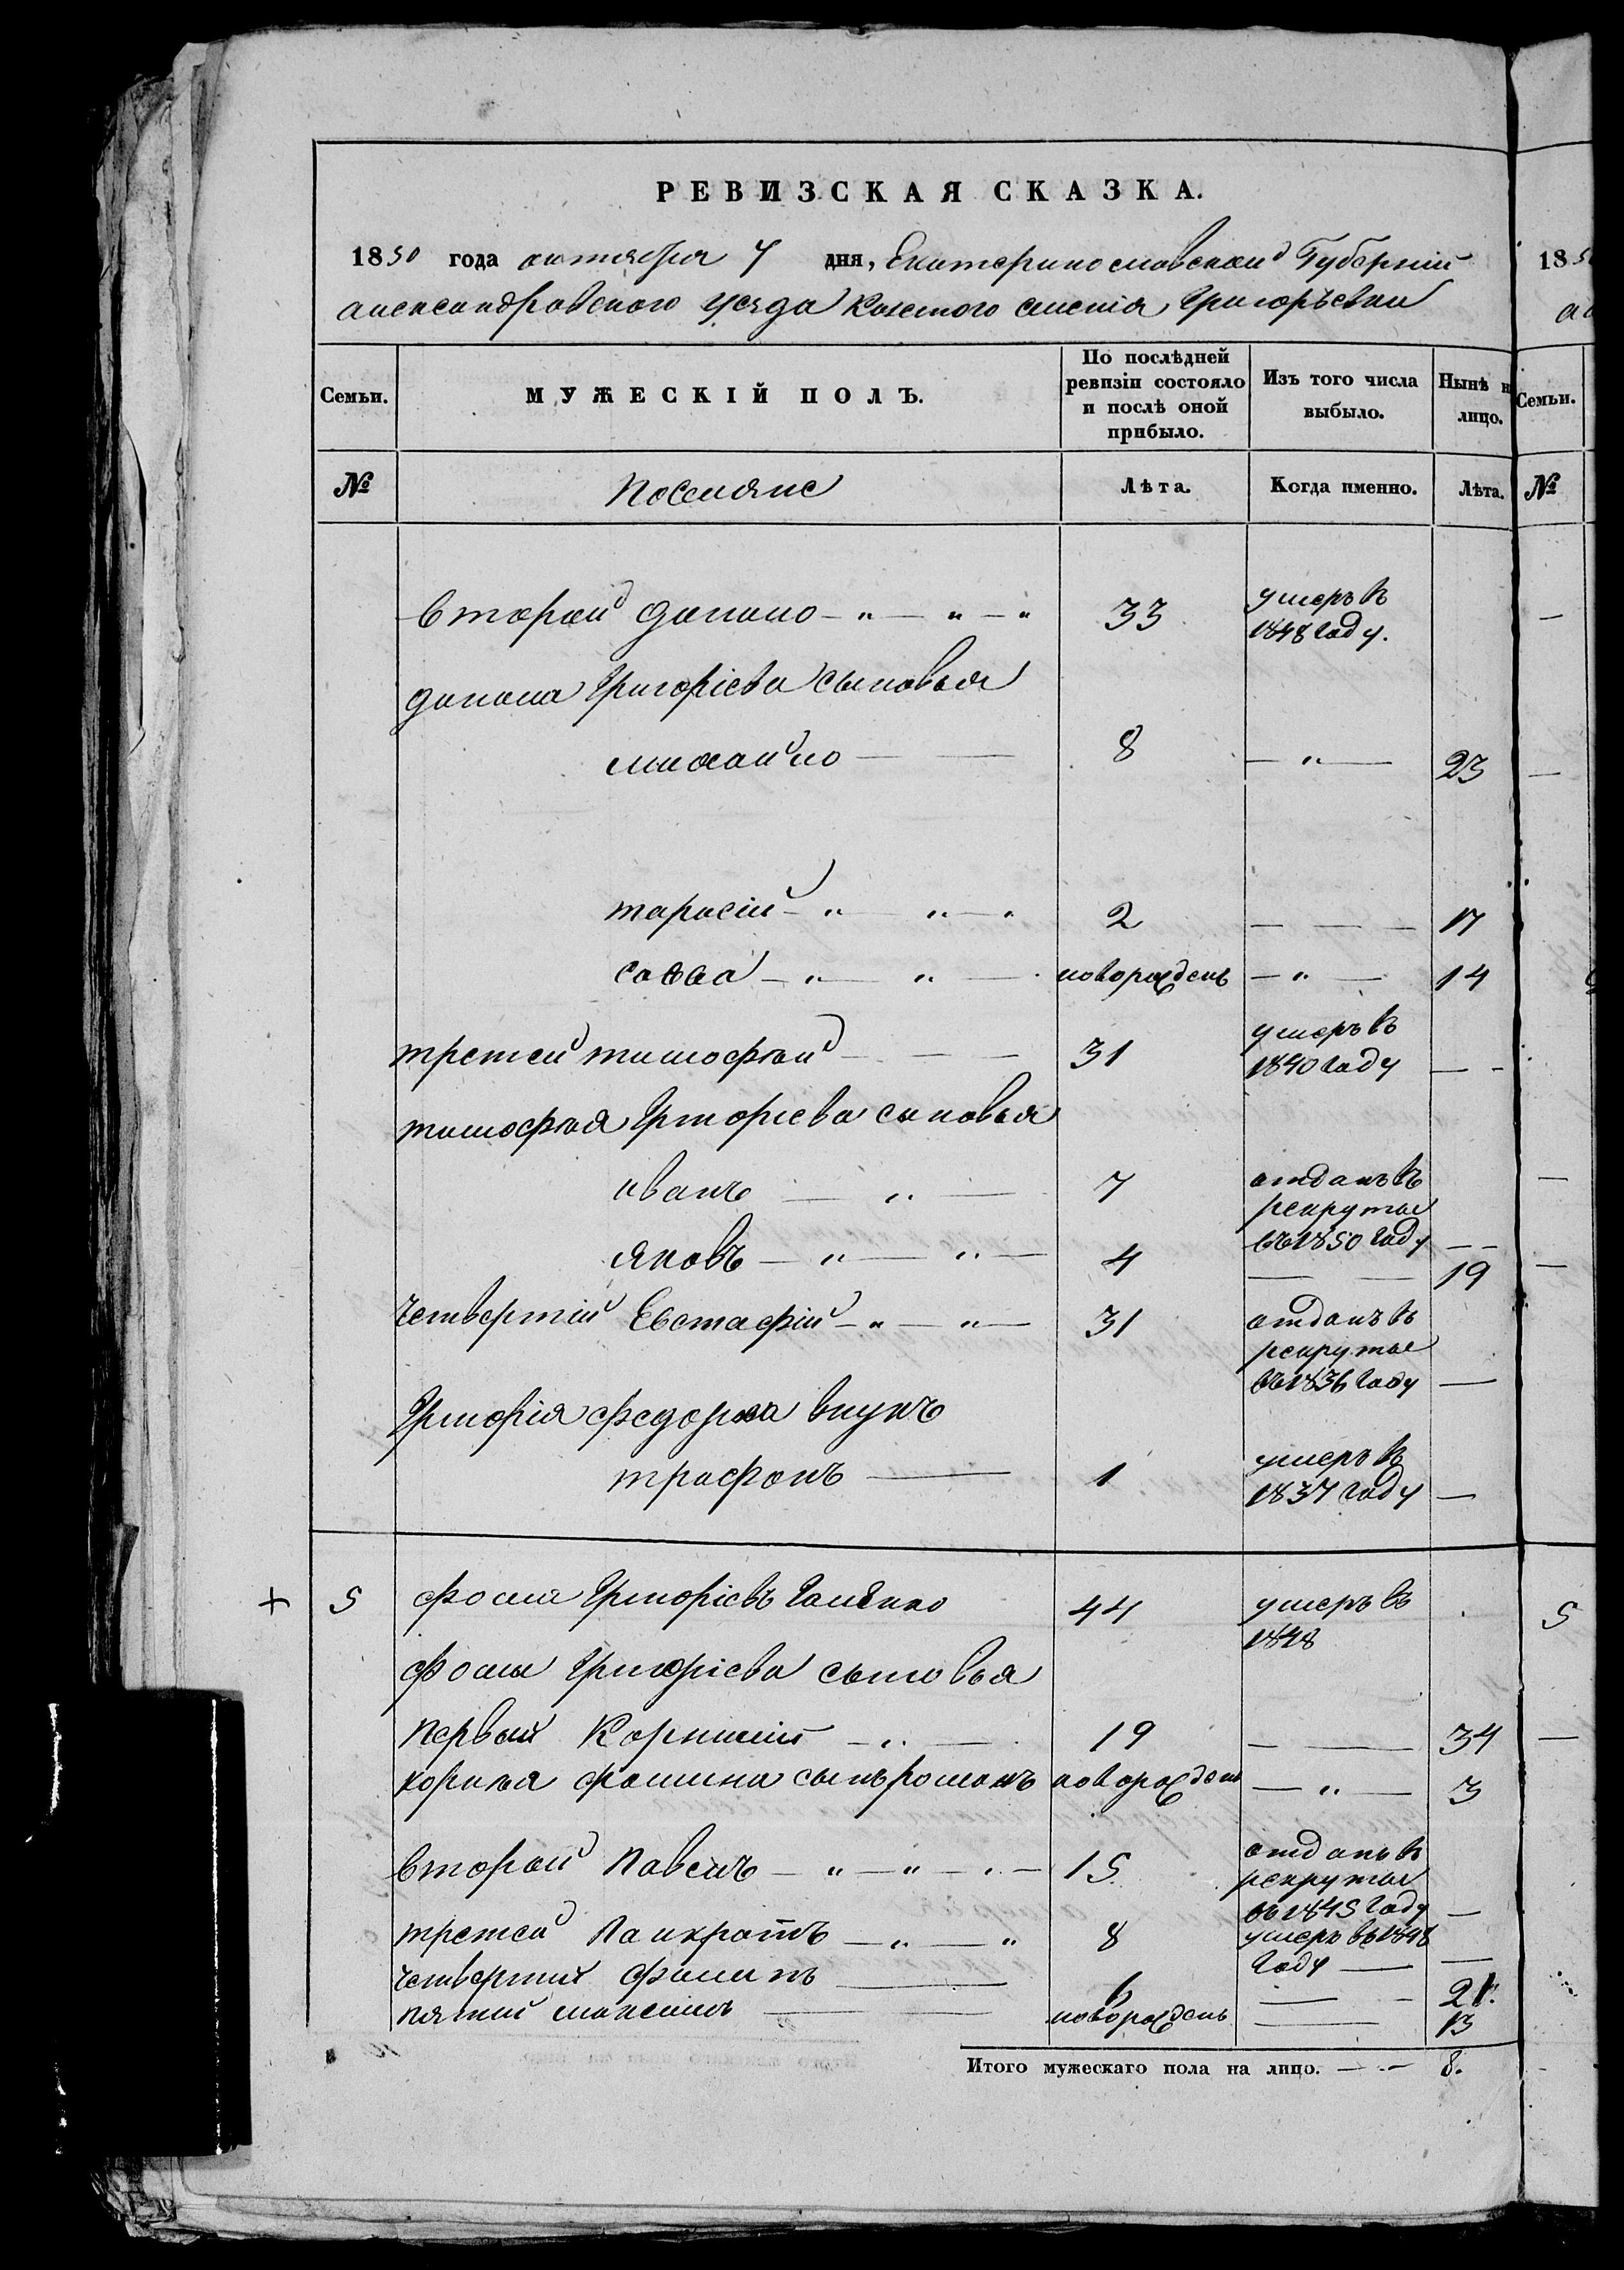 РЕВИЗСКАЯ СКАЗКА.
1850 года октября 7 дня, Екатеринославской Губерніи
александровского уезда Казеного селенія Григорьевки
Семьи. МУЖЕСКІЙ ПОЛЪ. По послѣдней ревизіи состояло и послѣ оной прибыло. Изъ того числа выбыло. Нынѣ н лицо.
№ Поселяне Лѣта. Когда именно. Лѣта.
второй данило 33 умеръ в 1848 году.
данила Григоріева сыновья
михайло 8 23
тарасій 2 17
савва новорожденъ 14
третей тимофей 31 умеръ въ 1840 году
тимофея Григоріева сыновья
иванъ 7 отданъ въ рекруты въ 1850 году
яковъ 4 19
четвертій Евстафій 31 отданъ въ рекруты въ 1836 году
Григорія федорова внукъ
трифонъ 1 умеръ в 1837 году
+ 5 фома Григоріевъ 44 умеръ въ 1848
фомы Григоріева сыновья
первый Корнией 19 34
корнея фомина сынъ романъ новорожденъ 3
второй Павелъ 15 отданъ в рекруты въ 1845 году
третей Панкратъ 8 умеръ въ 1848 году
четвертый 6 21.
пятый максимъ новорожденъ 13
Итого мужескаго пола на лицо. 8.
18
Семьи.
№
5